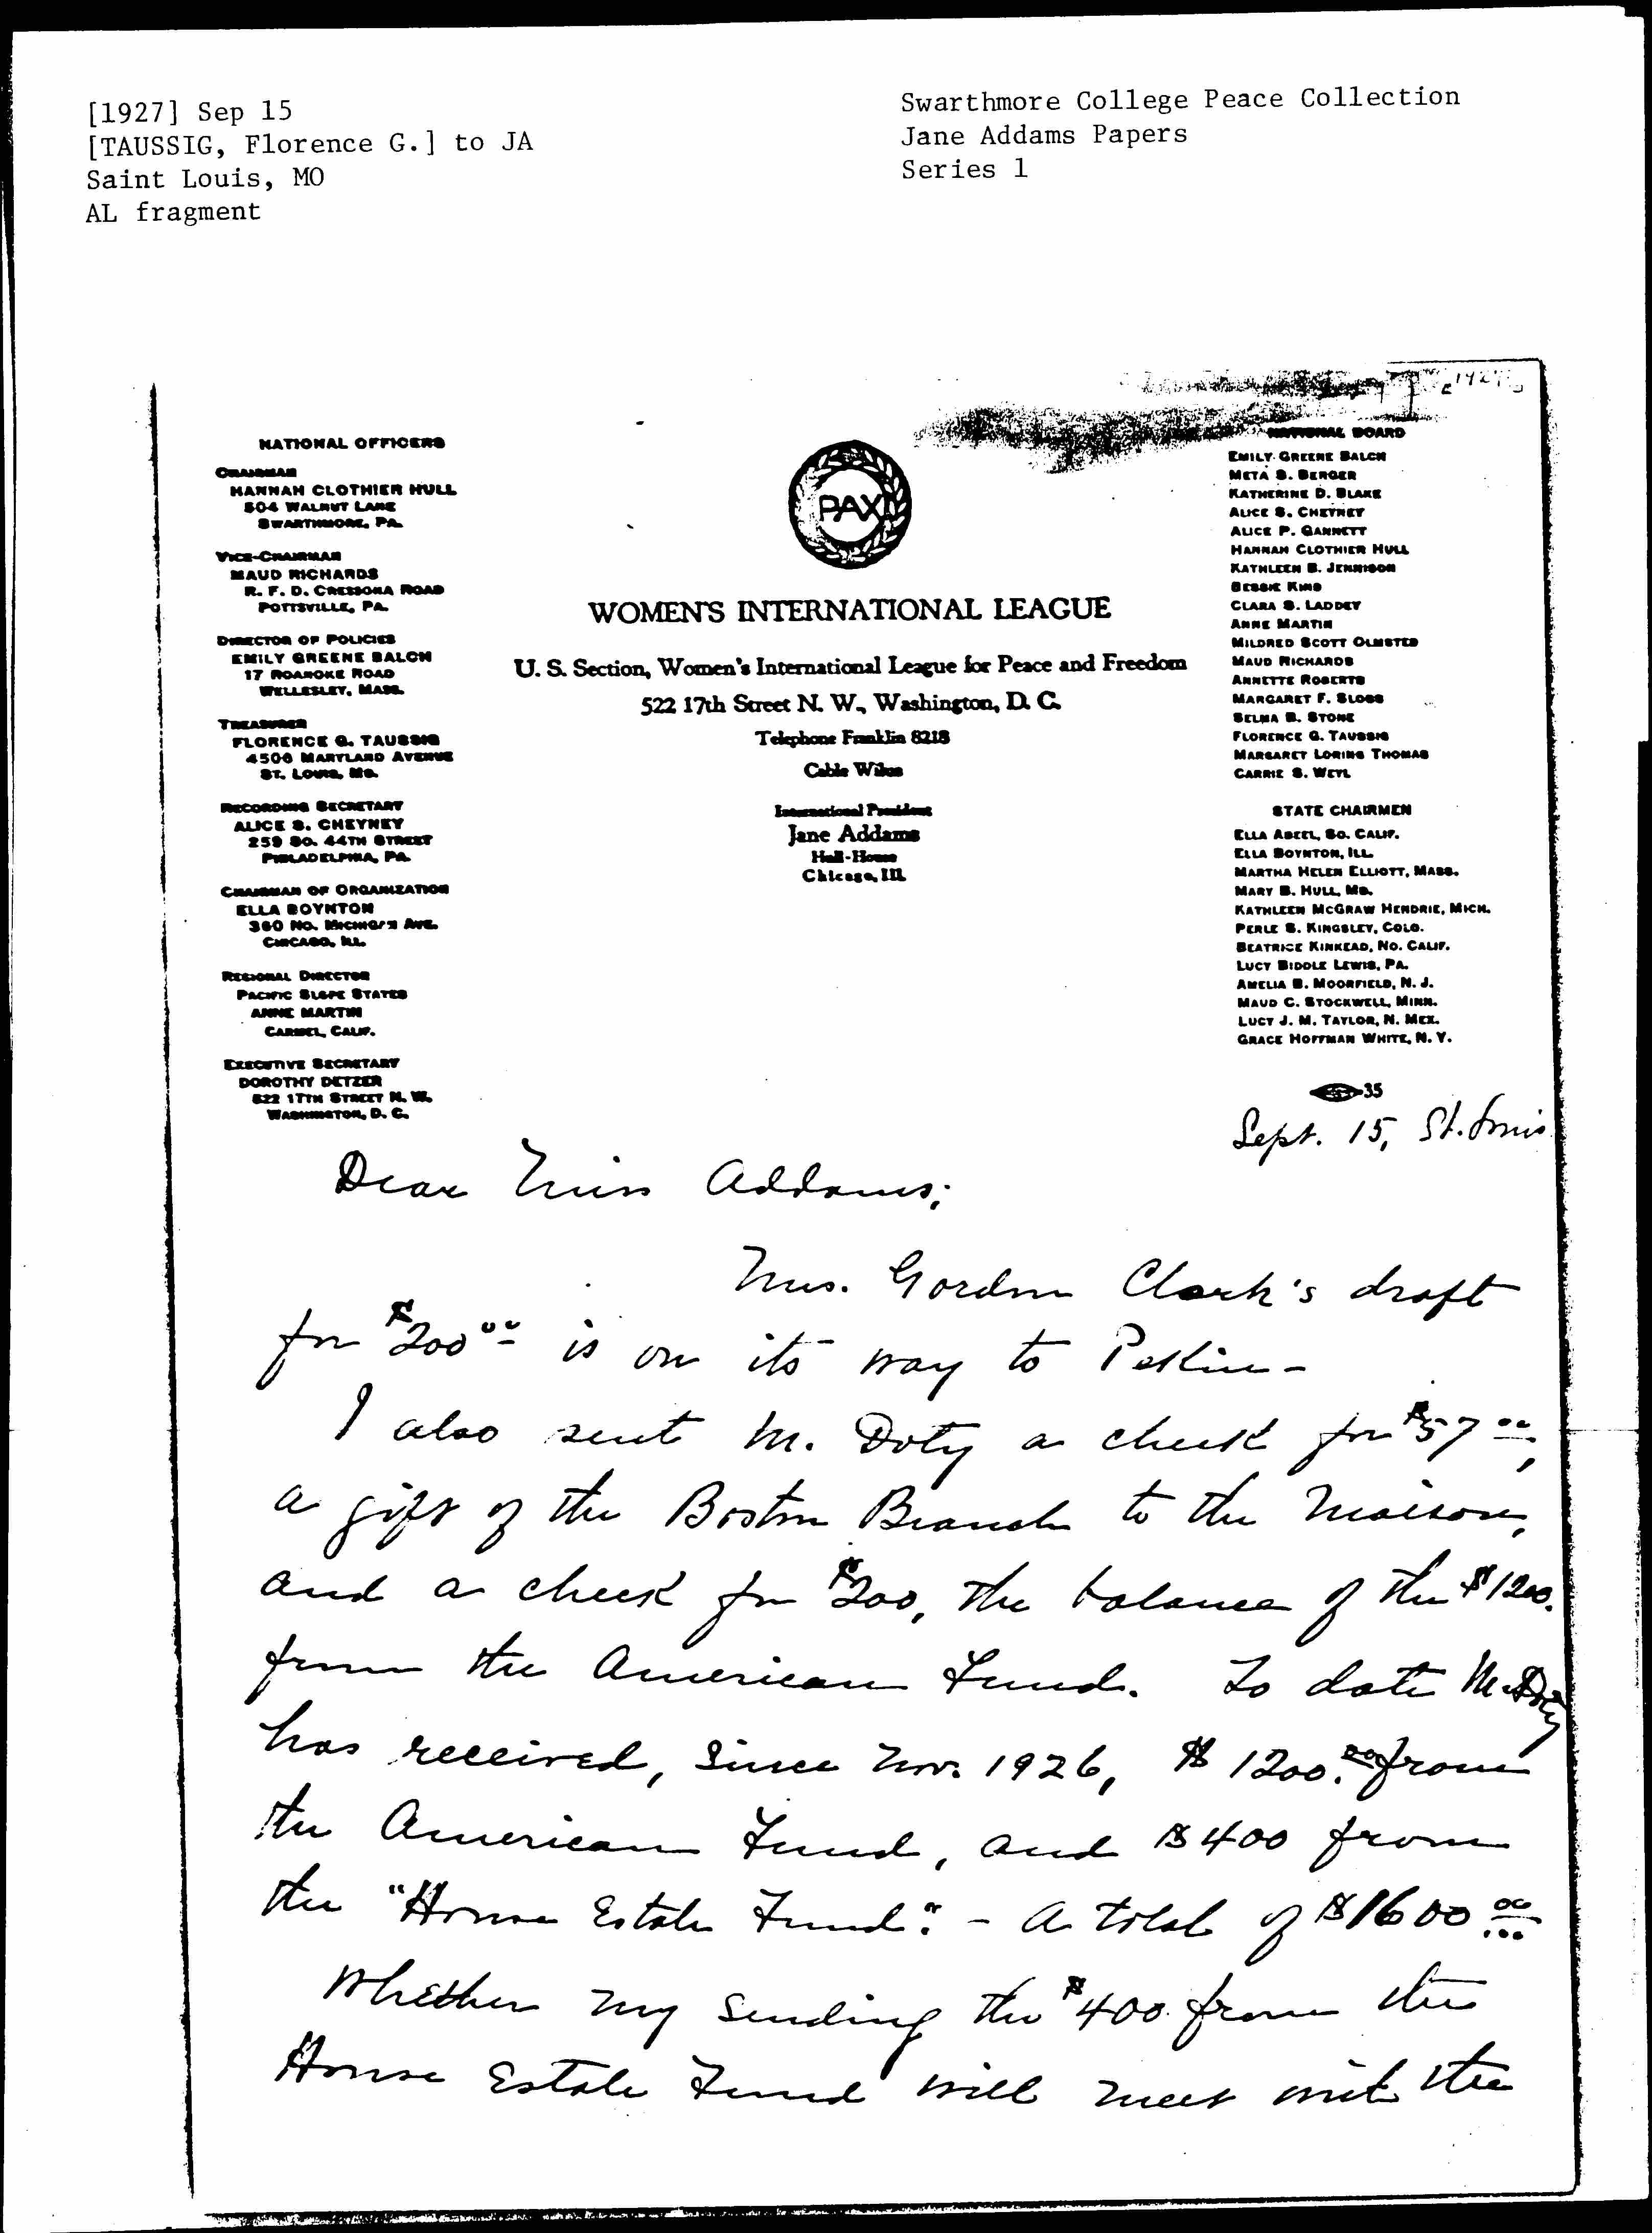 [1927] Sep 15
[TAUSSIG, Florence G.] to JA
Saint Louis, MO
AL fragment
Swarthmore College Peace Collection
Jane Addams Papers
Series 1
NATIONAL OFFICERS
CHAIRMAN
HANNAH CLOTHIER HULL
504 WALNUT LANE
SWARTHMORE, PA.
VICE-CHAIRMAN
MAUD RICHARDS
R. F. D. CRESSONA ROAD
POTTSVILLE, PA.
DIRECTOR OF POLICIES
EMILY GREENE BALCH
17 ROANOKE ROAD
WELLESLEY, MASS.
TREASURER
FLORENCE G. TAUSSIG
4506 MARYLAND AVENUE
ST. LOUIS, MO.
RECORDING SECRETARY
ALICE S. CHEYNEY
259 SO. 44TH STREET
PHILADELPHIA, PA.
CHAIRMAN OF ORGANIZATION
ELLA BOYNTON
360 NO. MICHIGAN AVE.
CHICAGO, ILL.
REGIONAL DIRECTOR
PACIFIC SLOPE STATES
ANNE MARTIN
CARMEL, CALIF.
EXECUTIVE SECRETARY
DOROTHY DETZER
522 17TH STREET N. W.
WASHINGTON, D. C.
PAX
WOMEN'S INTERNATIONAL LEAGUE
U. S. Section, Women's International League for Peace and Freedom
522 17th Street N. W., Washington, D. C.
Telephone Franklin 8218
Cable Wilus
International President
Jane Addams
Hull-House
Chicago, Ill.
1927
NATIONAL BOARD
EMILY GREENE BALCH
META S. BERGER
KATHERINE D. BLAKE
ALICE S. CHEYNEY
ALICE P. GANNETT
HANNAH CLOTHIER HULL
KATHLEEN B. JENNISON
BESSIE KIND
CLARA S. LADDEY
ANNE MARTIN
MILDRED SCOTT OLMSTED
MAUD RICHARDS
ANNETTE ROBERTS
MARGARET F. SLOSS
SELMA B. STONE
FLORENCE G. TAUSSIG
MARGARET LORING THOMAS
CARRIE S. WEYL
STATE CHAIRMEN
ELLA ABEEL, SO. CALIF.
ELLA BOYNTON, ILL.
MARTHA HELEN ELLIOTT, MASS.
MARY B. HULL, MO.
KATHLEEN MCGRAW HENDRIE, MICH.
PERLE S. KINGSLEY, COLO.
BEATRICE KINKEAD, NO. CALIF.
LUCY BIDDLE LEWIS, PA.
AMELIA B. MOORFIELD, N. J.
MAUD C. STOCKWELL, MINN.
LUCY J. M. TAYLOR, N. MEX.
GRACE HOFFMAN WHITE, N. Y.
35
Sept. 15, St. Louis
Dear Miss Addams;
Mrs. Gordon Clark's draft
for $200.00 is on its way to Pekin -
I also sent M. Doty a check for $57.00,
a gift of the Boston Branch to the Maison,
and a check for $200, the balance of the $1200.
from the American Fund. To date M. Doty
has received, since Nov. 1926, $1200.00 from
the American Fund, and $400 from
the "House Estate Fund". - A total of $1600.00
Whether my sending the $400 from the
House Estate Fund will meet with the